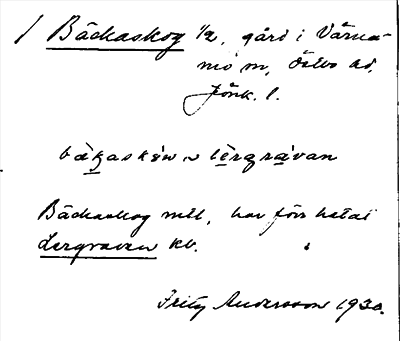 / Bäckaskog 1/2, gård i Värna-
mo sn, Östbo hd,
Jönk. l.
bäkaskéw ~ lèrgrávan
Bäckaskog mtl, har förr hetat
Lergraven kv.
Fritz Andersson 1930.